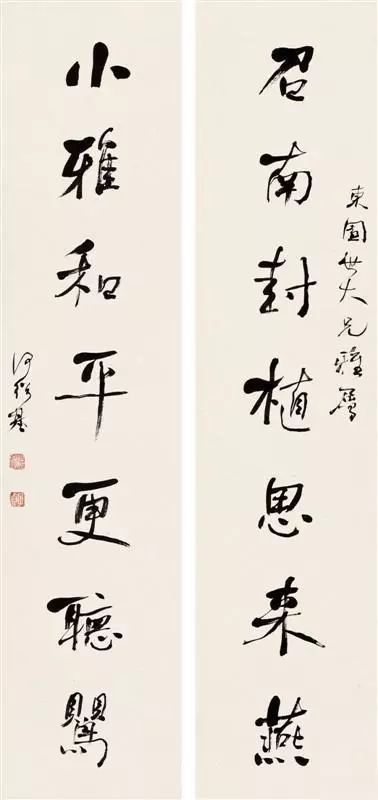 東世大兄雅屬
召南封植思来燕
小雅和平更聽鸎
何紹基